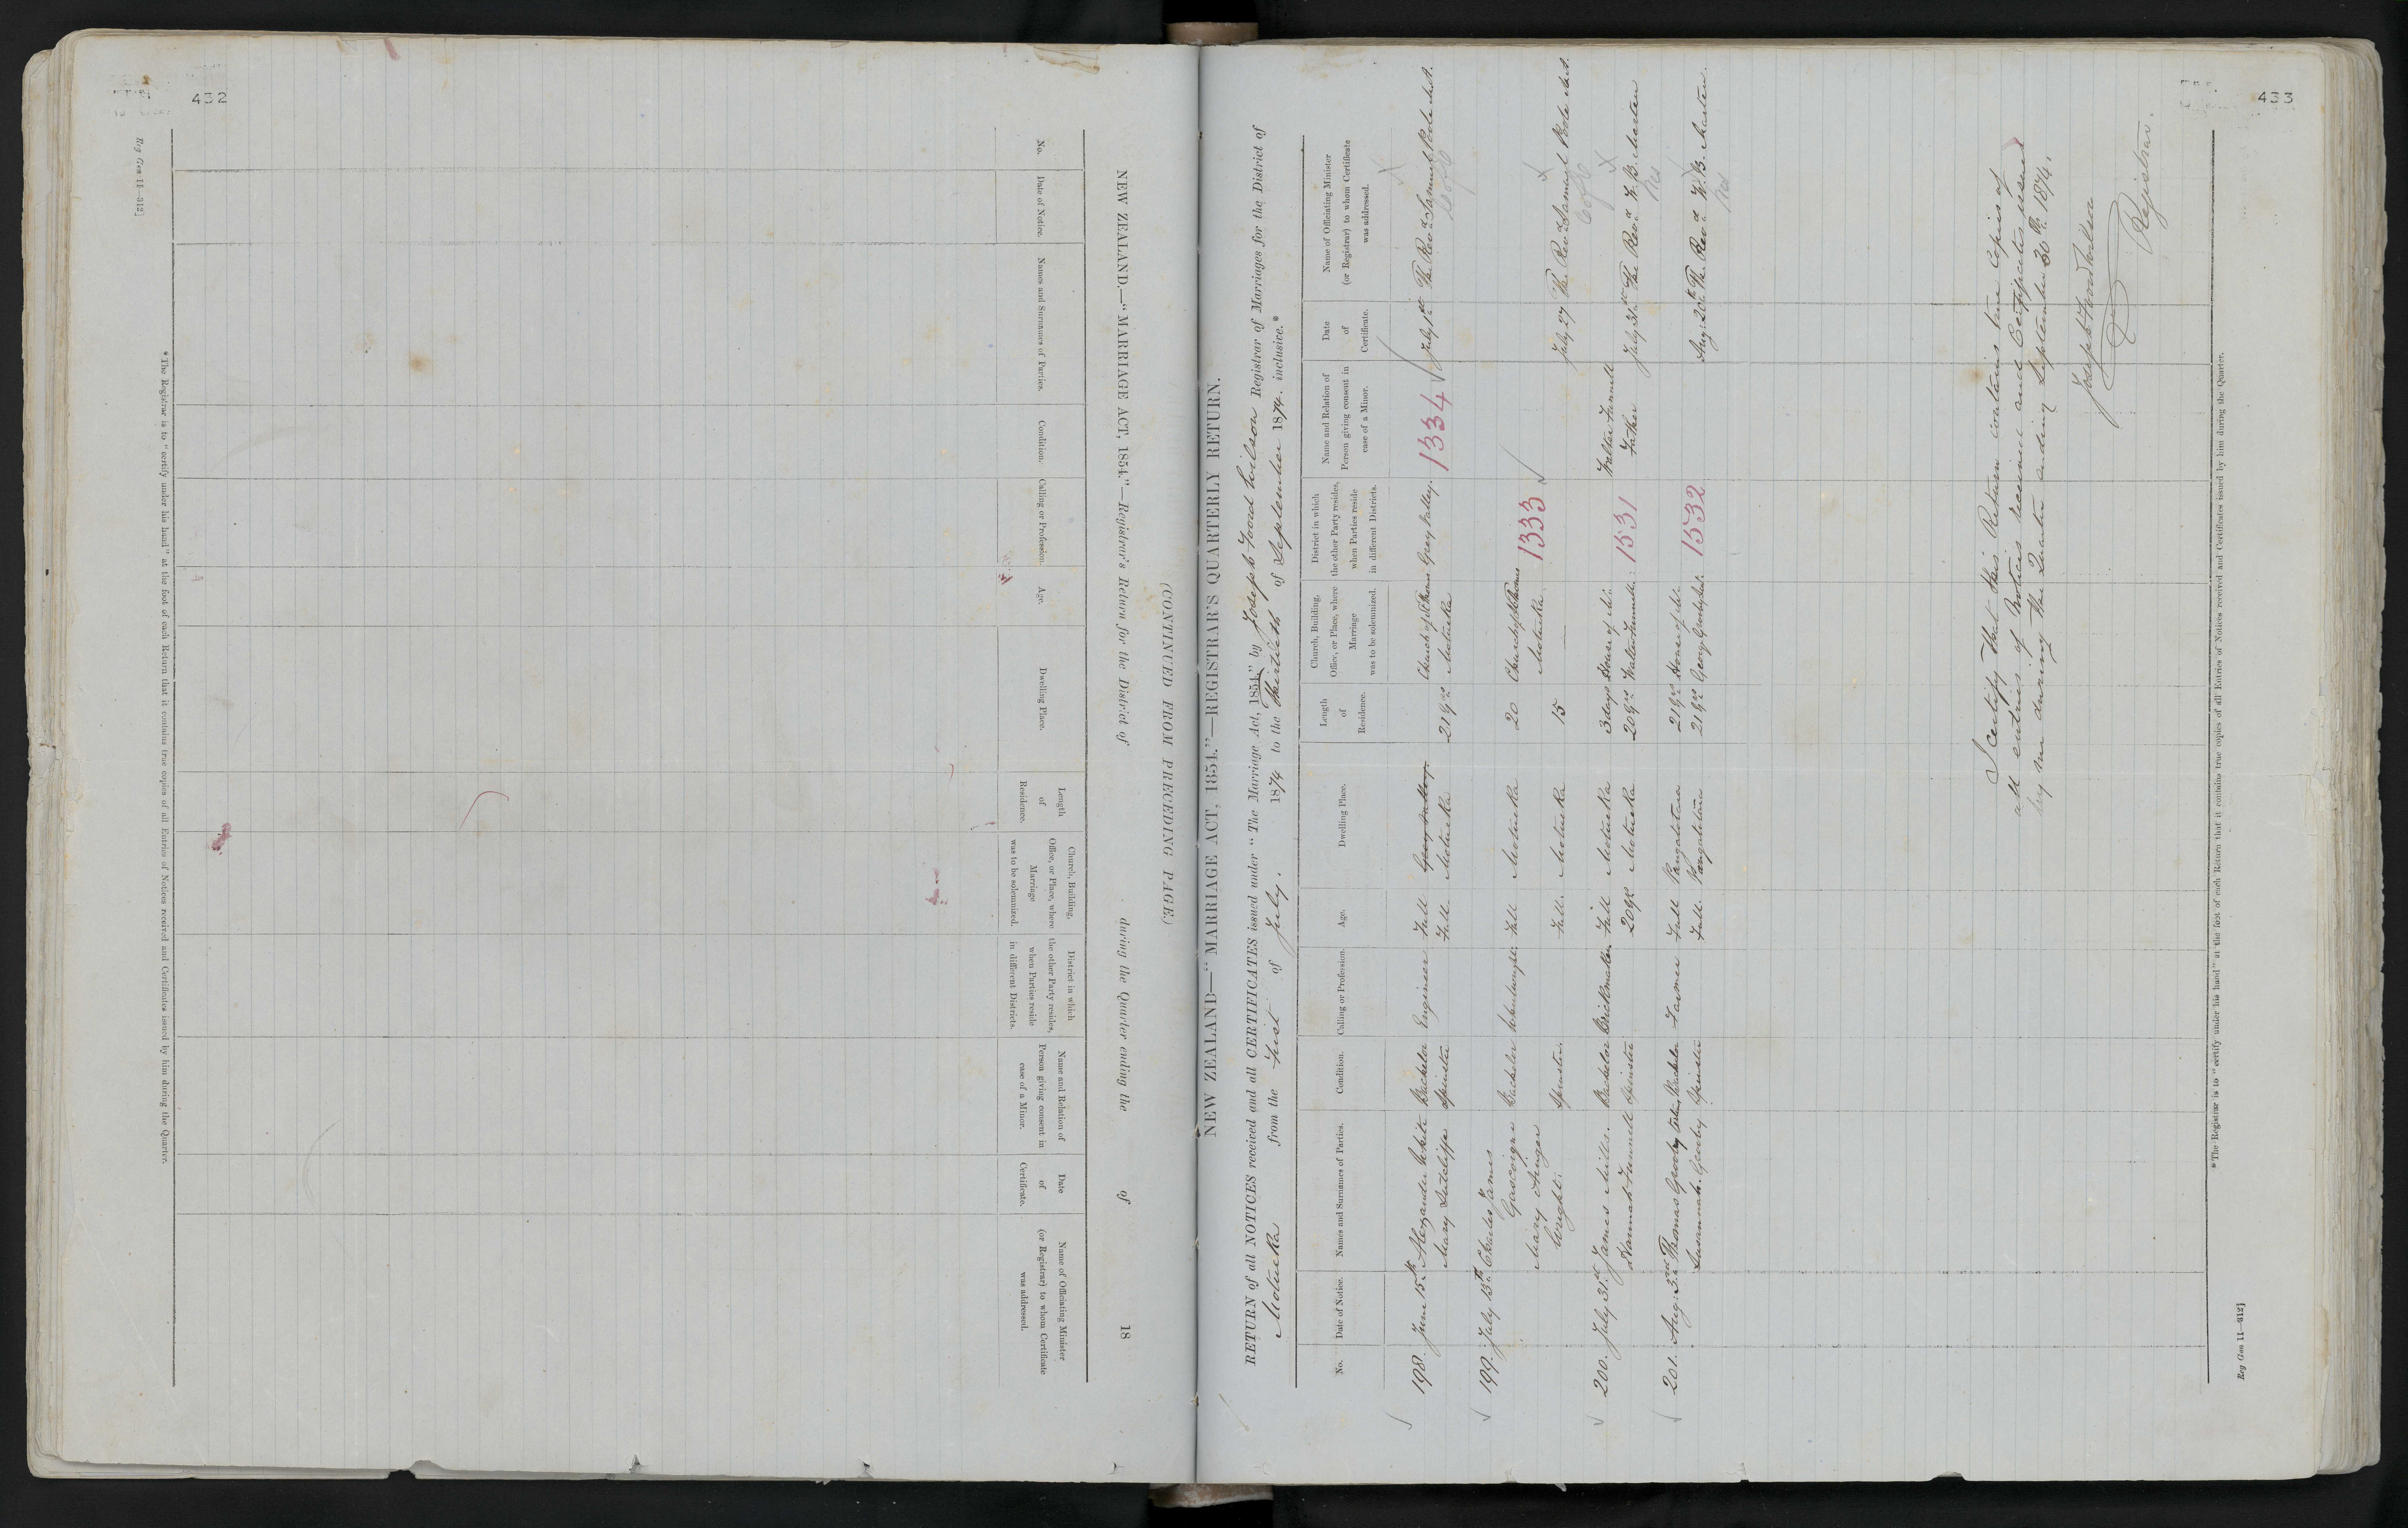 432
Reg Gen 11—312]
NEW ZEALAND.—"MARRIAGE ACT, 1854."—Registrar's Return for the District of during the Quarter ending the of 18
(CONTINUED FROM PRECEDING PAGE.)
No.
Date of Notice.
Names and Surnames of Parties.
Condition.
Calling or Profession.
Age.
Dwelling Place.
Length
of
Residence.
Church, Building,
Office, or Place, where
Marriage
was to be solemnized.
District in which
the other Party resides,
when Parties reside
in different Districts.
Name and Relation of
Person giving consent in
case of a Minor.
Date
of
Certificate.
Name of Officiating Minister
(or Registrar) to whom Certificate
was addressed.
*The Registrar is to "certify under his hand" at the foot of each Return that it contains true copies of all Entries of Notices received and Certificates issued by him during the Quarter.
433
NEW ZEALAND—"MARRIAGE ACT, 1854."—REGISTRAR'S QUARTERLY RETURN.
RETURN of all NOTICES received and all CERTIFICATES issued under "The Marriage Act, 1854," by Joseph Foord Wilson Registrar of Marriages for the District of
Motueka from the first of July. 1874 to the Thirtieth of September 1874. inclusive.*
No.
Date of Notice.
Names and Surnames of Parties.
Condition.
Calling or Profession.
Age.
Dwelling Place.
Length
of
Residence.
Church, Building,
Office, or Place, where
Marriage
was to be solemnized.
District in which
the other Party resides,
when Parties reside
in different Districts.
Name and Relation of
Person giving consent in
case of a Minor.
Date
of
Certificate.
Name of Officiating Minister
(or Registrar) to whom Certificate
was addressed.
198. June 15th Alexander White Bachelor Engineer Full Grey Valley. Church of St Thomas Grey Valley. 1334 July 1st The Revd Samuel Poole M.A.
Mary Sutcliffe Spinster Full. Motueka 21 yrs Motueka
C of E
199. July 13th Charles James
Gascoigne Bachelor Wheelwright Full Motueka 20 Church of St Thomas
Mary Wright. Motueka 1333
Spinster. Full. Motueka 15 July 27 The Revd Samuel Poole M.A.
C of E
200. July 31st James Mills. Bachelor Brickmaker Full Motueka 3 days House of Mr. Walter Funnell
Hannah Funnell Spinster 20 yrs Motueka 20 yrs Walter Funnell. 1531 Father July 31st The Revd F. B. Marten
201. Aug: 3rd Thomas Grooby Bachelor Farmer Full Pangatotara 21 yrs House of Mr.
Susannah Grooby Spinster Full. Pangatotara 21 yrs George Grooby. 1532 Aug: 20th The Revd F. B. Marten.
I certify that this Return contains true Copies of
all entries of Notices received and Certificates issued
by me during the Quarter ending September 30th 1874.
Joseph Foord Wilson
Registrar.
*The Registrar is to "certify under his hand" at the foot of each Return that it contains true copies of all Entries of Notices received and Certificates issued by him during the Quarter.
Reg Gen 11—312]